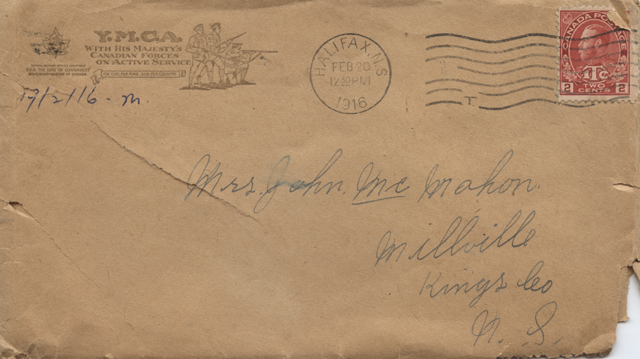 Y.M.C.A.
WITH HIS MAJESTY'S
CANADIAN FORCES
ON ACTIVE SERVICE
17/2/16 - m.
HALIFAX, N.S.
FEB 20
12 30 PM
1916
T
CANADA POSTAGE
1Tc
2 TWO CENTS 2
Mrs. John Mc Mahon.
Millville
Kings Co
N. S.